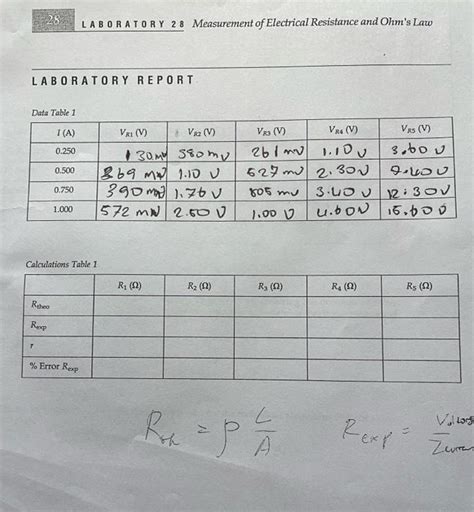 28 LABORATORY 28 Measurement of Electrical Resistance and Ohm's Law
LABORATORY REPORT
Data Table 1
I (A) V_R1 (V) V_R2 (V) V_R3 (V) V_R4 (V) V_R5 (V)
0.250 130mV 580mV 261mV 1.10V 3.60V
0.500 269mV 1.10V 527mV 2.30V
0.750 390mV 1.76V 805mV 3.40V 12.30V
1.000 572mV 2.50V 1.00V 4.60V 15.60V
Calculations Table 1
R₁ (Ω) R₂ (Ω) R₃ (Ω) R₄ (Ω) R₅ (Ω)
R_theo
R_exp
r
% Error R_exp
= ρ L/A R_exp =